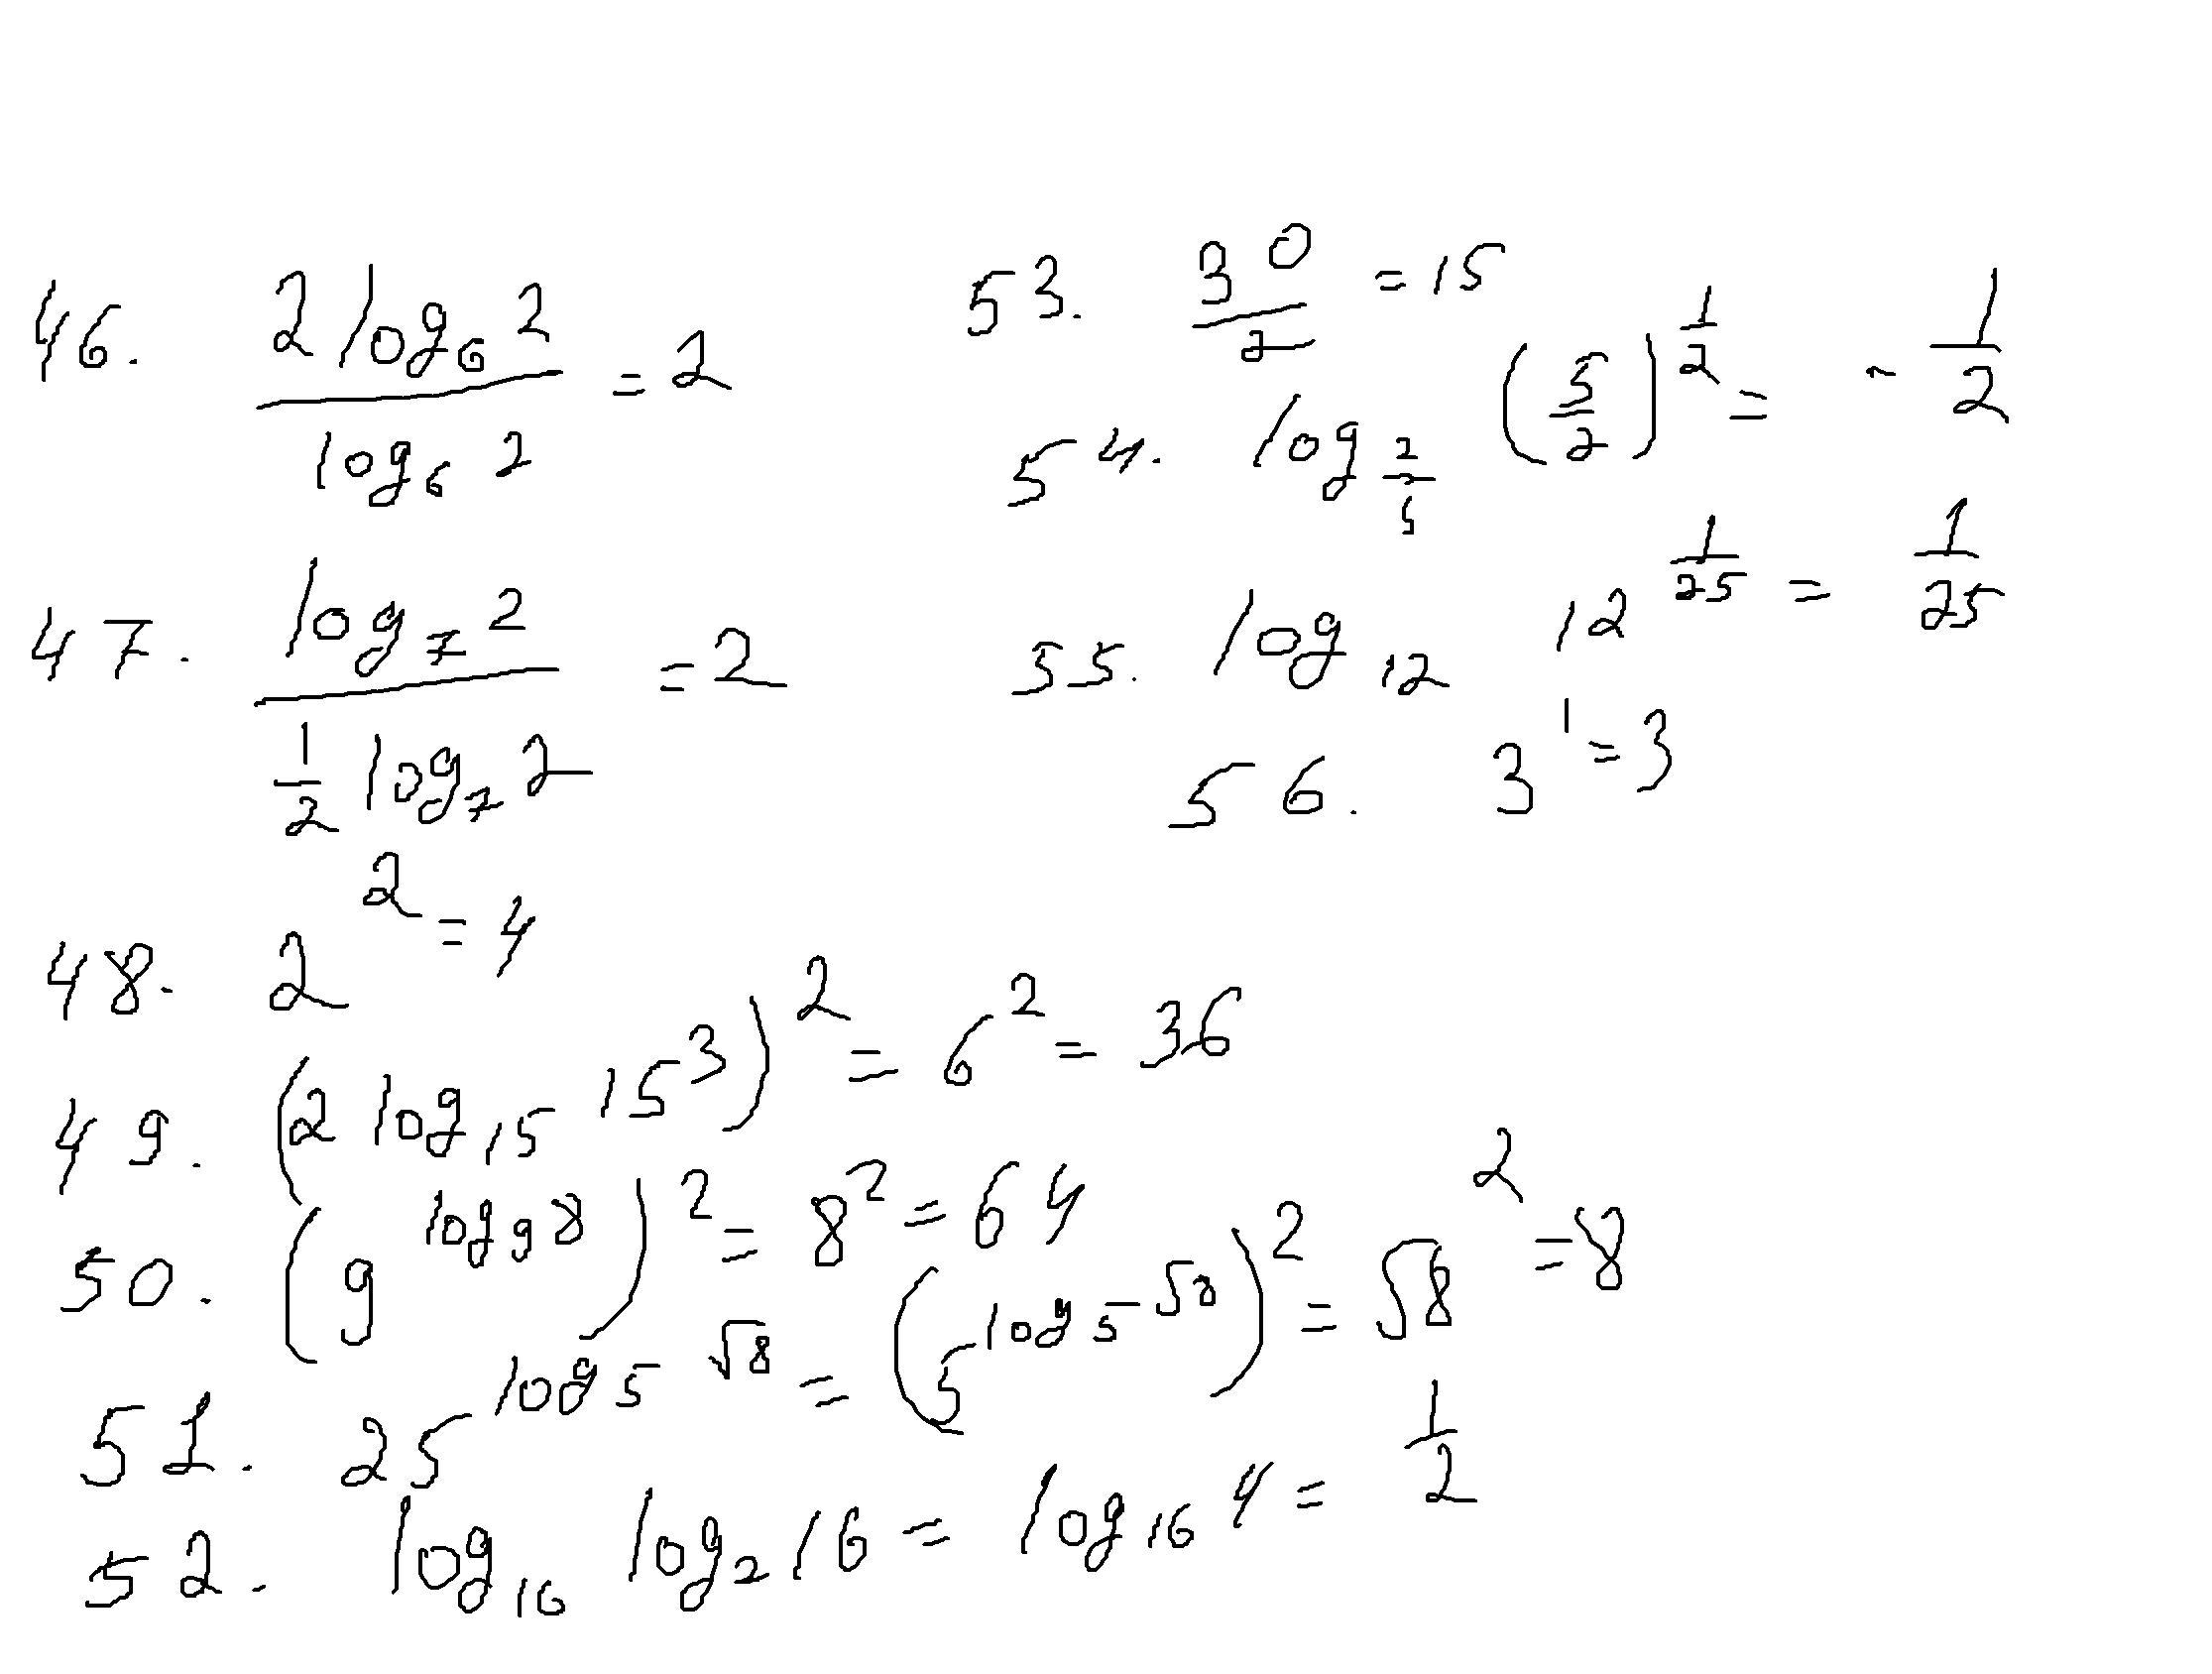 46. (2 log₆ 2)/(log₆ 2) = 2
47. (log₇ 2)/(1/2 log₇ 2) = 2
48. 2² = 4
49. (2 log₁₅ 15³)² = 6² = 36
50. (9^(log₉ 8))² = 8² = 64
51. 25^(log₅ √8) = (5^(log₅ √8))² = √8² = 8
52. log₁₆ log₂ 16 = log₁₆ 4 = 1/2
53. 30/2 = 15
54. log_(2/5) (5/2)^(1/2) = -1/2
55. log₁₂ 12^(1/25) = 1/25
56. 3¹ = 3